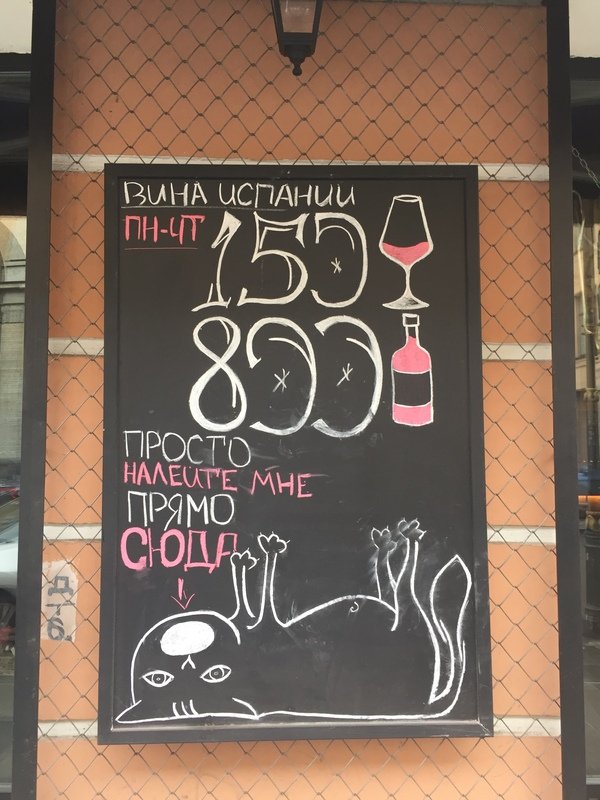 ВИНА ИСПАНИИ
ПН-ЧТ
150
800
ПРОСТО
НАЛЕЙТЕ МНЕ
ПРЯМО
СЮДА